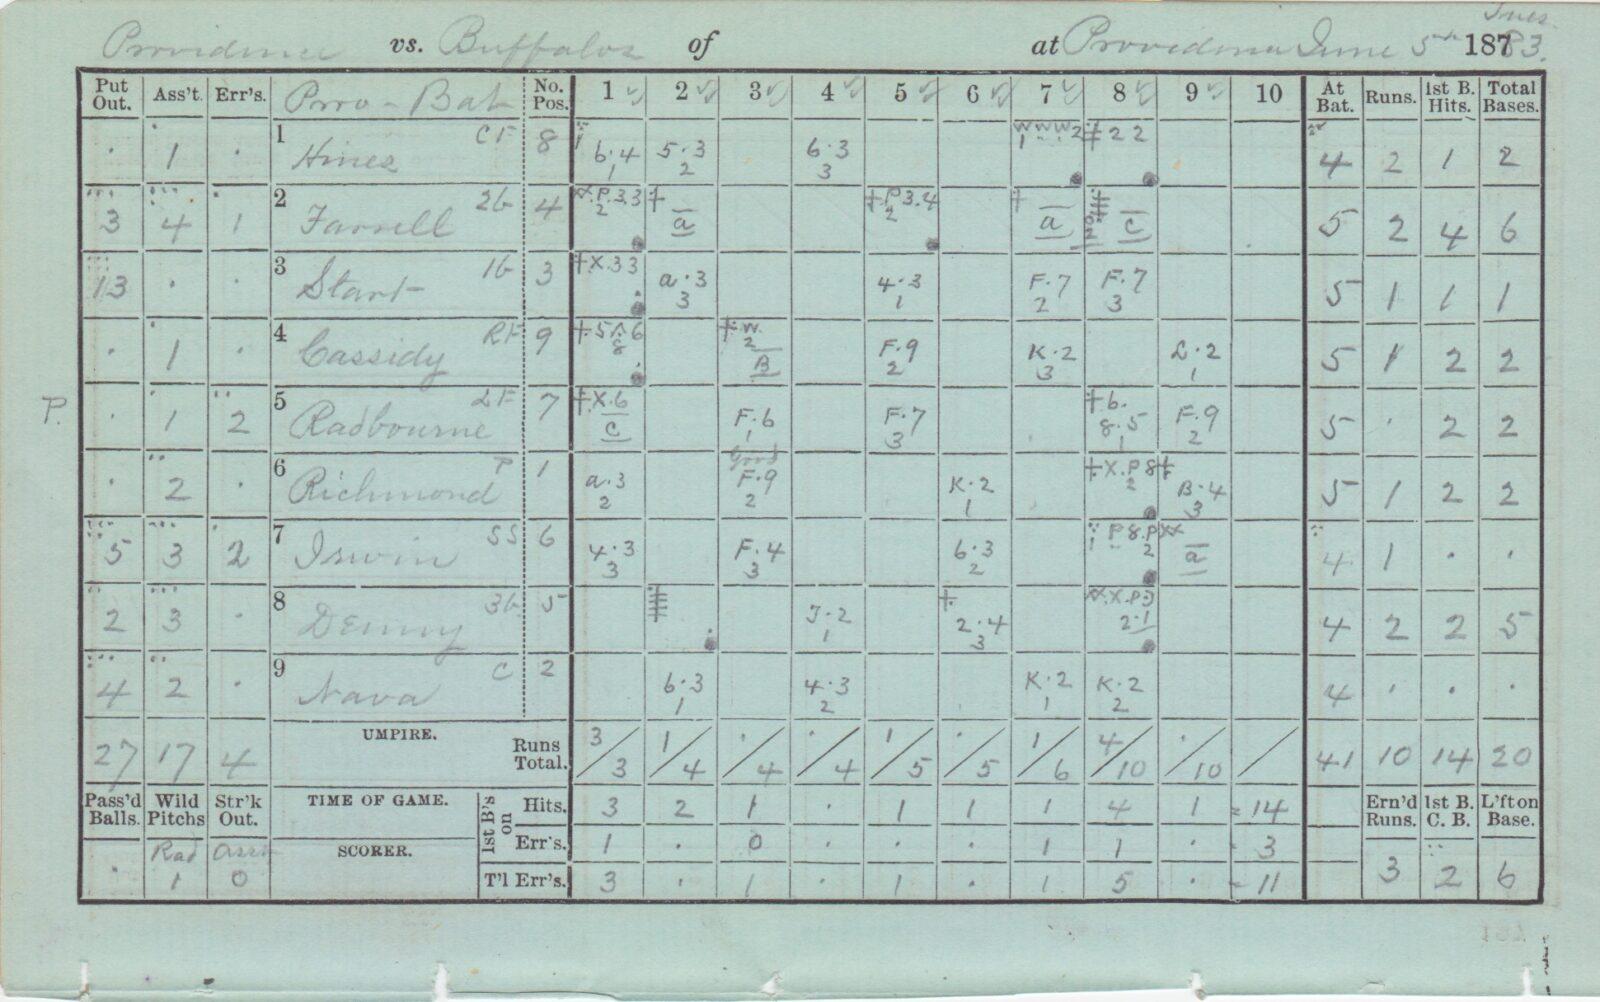 Tues.
Providence vs. Buffalos of at Providence June 5th 1883.
Put Out. Ass't. Err's. Prov - Bat No. Pos. 1 2 3 4 5 6 7 8 9 10 At Bat. Runs. 1st B. Hits. Total Bases.
· 1 · 1 Hines CF 8 6·4 1 5·3 2 6·3 3 4 2 1 2
3 4 1 2 Farrell 2b 4 X.P.3.3 2 a P 3.4 2 a c 5 2 4 6
13 · · 3 Start 1b 3 X.33 a·3 3 4·3 1 F.7 2 F.7 3 5 1 1 1
· 1 · 4 Cassidy RF 9 W. 2 B F.9 2 K·2 3 L·2 1 5 1 2 2
P. · 1 2 5 Radbourne LF 7 X.6 c F.6 1 F.7 3 6. 8.5 1 F.9 2 5 · 2 2
Good
· 2 · 6 Richmond P 1 a.3 2 F.9 2 K·2 1 X.P 8 2 B·4 3 5 1 2 2
5 3 2 7 Irwin SS 6 4·3 3 F.4 3 6·3 2 P8.P 2 a 4 1 · ·
2 3 · 8 Denny 3b 5 J·2 1 2·4 3 2·1 4 2 2 5
4 2 · 9 Nava C 2 6·3 1 4·3 2 K·2 1 K·2 2 4 · · ·
27 17 4 UMPIRE. Runs Total. 3/3 1/4 ·/4 ·/4 1/5 ·/5 1/6 4/10 ·/10 / 41 10 14 20
Pass'd Balls. Wild Pitchs Str'k Out. TIME OF GAME. 1st B's on Hits. 3 2 1 · 1 1 1 4 1 = 14 Ern'd Runs. 1st B. C. B. L'ft on Base.
· Rad 1 0 SCORER. Err's. 1 · 0 · · · 1 1 · 3 3 2 6
T'l Err's. 3 · 1 · 1 · 1 5 · = 11